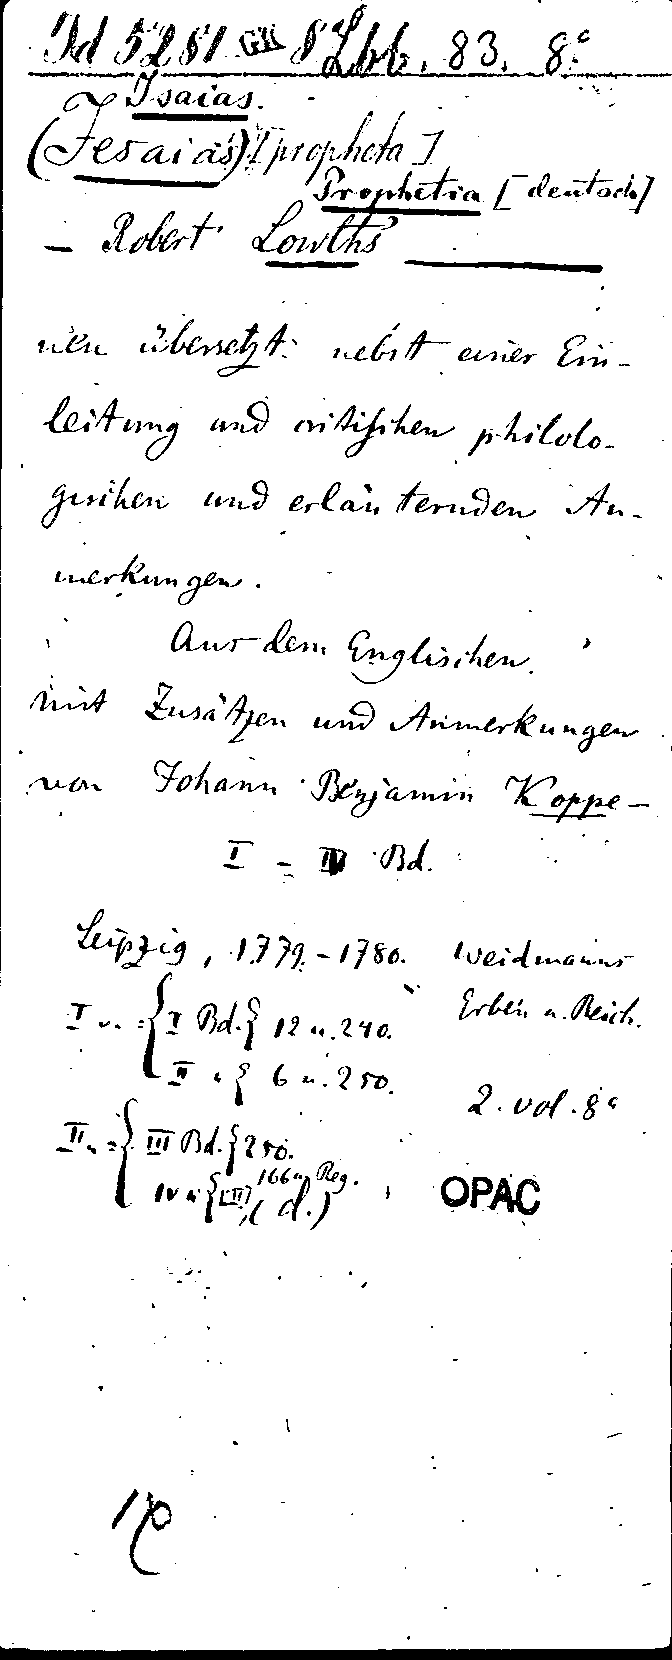 Id 5251 8 Lbb. 83. 8°
Isaias.
(Jesaias) [propheta]
Prophetia [deutsch]
— Robert Lowth's
neu übersetzt nebst einer Ein-
leitung und critischen philolo-
gischen und erläuternden An-
merkungen.
Aus dem Englischen.
mit Zusätzen und Anmerkungen
von Johann Benjamin Koppe —
I - IV Bd.
Leipzig, 1779. - 1780. Weidmanns
Erben u. Reich.
I { I Bd. { 12 u. 240.
II " { 6 u. 250.
2. vol. 8°
II { III Bd. { 250.
IV " { [III] 166 u. Reg.
(d.)
OPAC